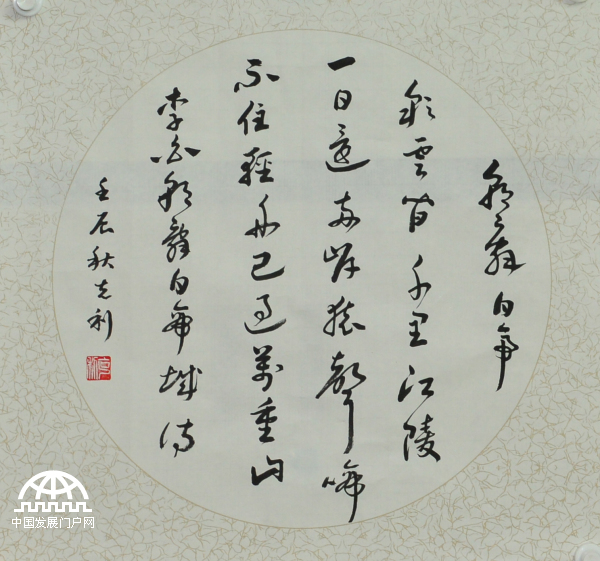 朝辭白帝
彩雲间千里江陵
一日還两岸猿聲啼
不住輕舟已過萬重山
李白朝辭白帝城诗
壬辰秋克利
中国发展门户网